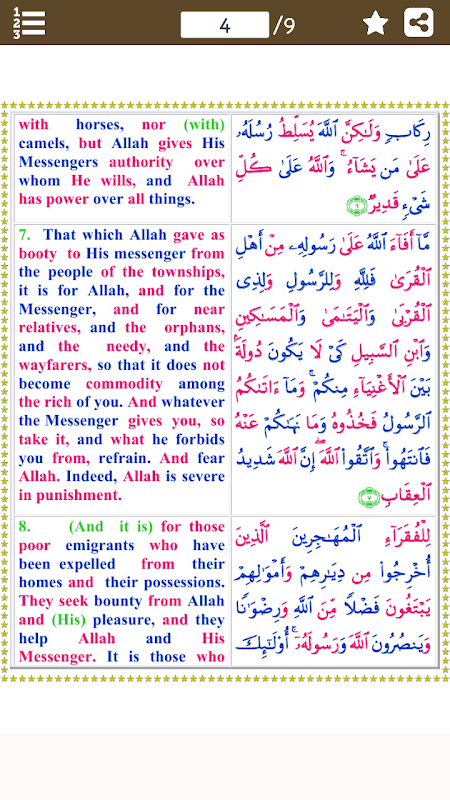 1
2
3
4
/9
with horses, nor (with)
camels, but Allah gives His
Messengers authority over
whom He wills, and Allah
has power over all things.
رِكَابٍ وَلَـٰكِنَّ ٱللَّهَ يُسَلِّطُ رُسُلَهُۥ
عَلَىٰ مَن يَشَآءُ ۚ وَٱللَّهُ عَلَىٰ كُلِّ
شَىْءٍ قَدِيرٌ ٦
7. That which Allah gave as
booty to His messenger from
the people of the townships,
it is for Allah, and for the
Messenger, and for near
relatives, and the orphans,
and the needy, and the
wayfarers, so that it does not
become commodity among
the rich of you. And whatever
the Messenger gives you, so
take it, and what he forbids
you from, refrain. And fear
Allah. Indeed, Allah is severe
in punishment.
مَّآ أَفَآءَ ٱللَّهُ عَلَىٰ رَسُولِهِۦ مِنْ أَهْلِ
ٱلْقُرَىٰ فَلِلَّهِ وَلِلرَّسُولِ وَلِذِى
ٱلْقُرْبَىٰ وَٱلْيَتَـٰمَىٰ وَٱلْمَسَـٰكِينِ
وَٱبْنِ ٱلسَّبِيلِ كَىْ لَا يَكُونَ دُولَةًۢ
بَيْنَ ٱلْأَغْنِيَآءِ مِنكُمْ ۚ وَمَآ ءَاتَىٰكُمُ
ٱلرَّسُولُ فَخُذُوهُ وَمَا نَهَىٰكُمْ عَنْهُ
فَٱنتَهُوا۟ ۚ وَٱتَّقُوا۟ ٱللَّهَ ۖ إِنَّ ٱللَّهَ شَدِيدُ
ٱلْعِقَابِ ٧
8. (And it is) for those
poor emigrants who have
been expelled from their
homes and their possessions.
They seek bounty from Allah
and (His) pleasure, and they
help Allah and His
Messenger. It is those who
لِلْفُقَرَآءِ ٱلْمُهَـٰجِرِينَ ٱلَّذِينَ
أُخْرِجُوا۟ مِن دِيَـٰرِهِمْ وَأَمْوَٰلِهِمْ
يَبْتَغُونَ فَضْلًا مِّنَ ٱللَّهِ وَرِضْوَٰنًا
وَيَنصُرُونَ ٱللَّهَ وَرَسُولَهُۥٓ ۚ أُو۟لَـٰٓئِكَ